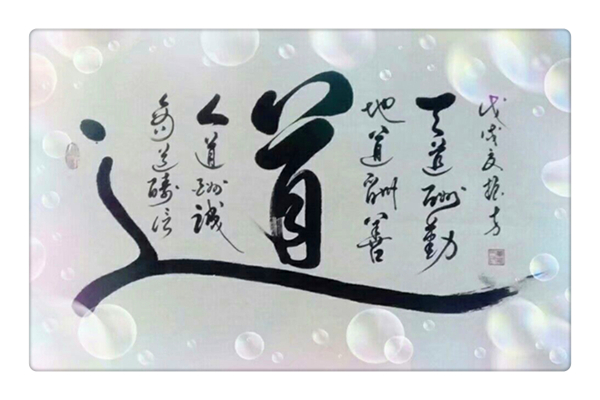 戊戌夏
天道酬勤
地道酬善
道
人道酬誠
商道酬信